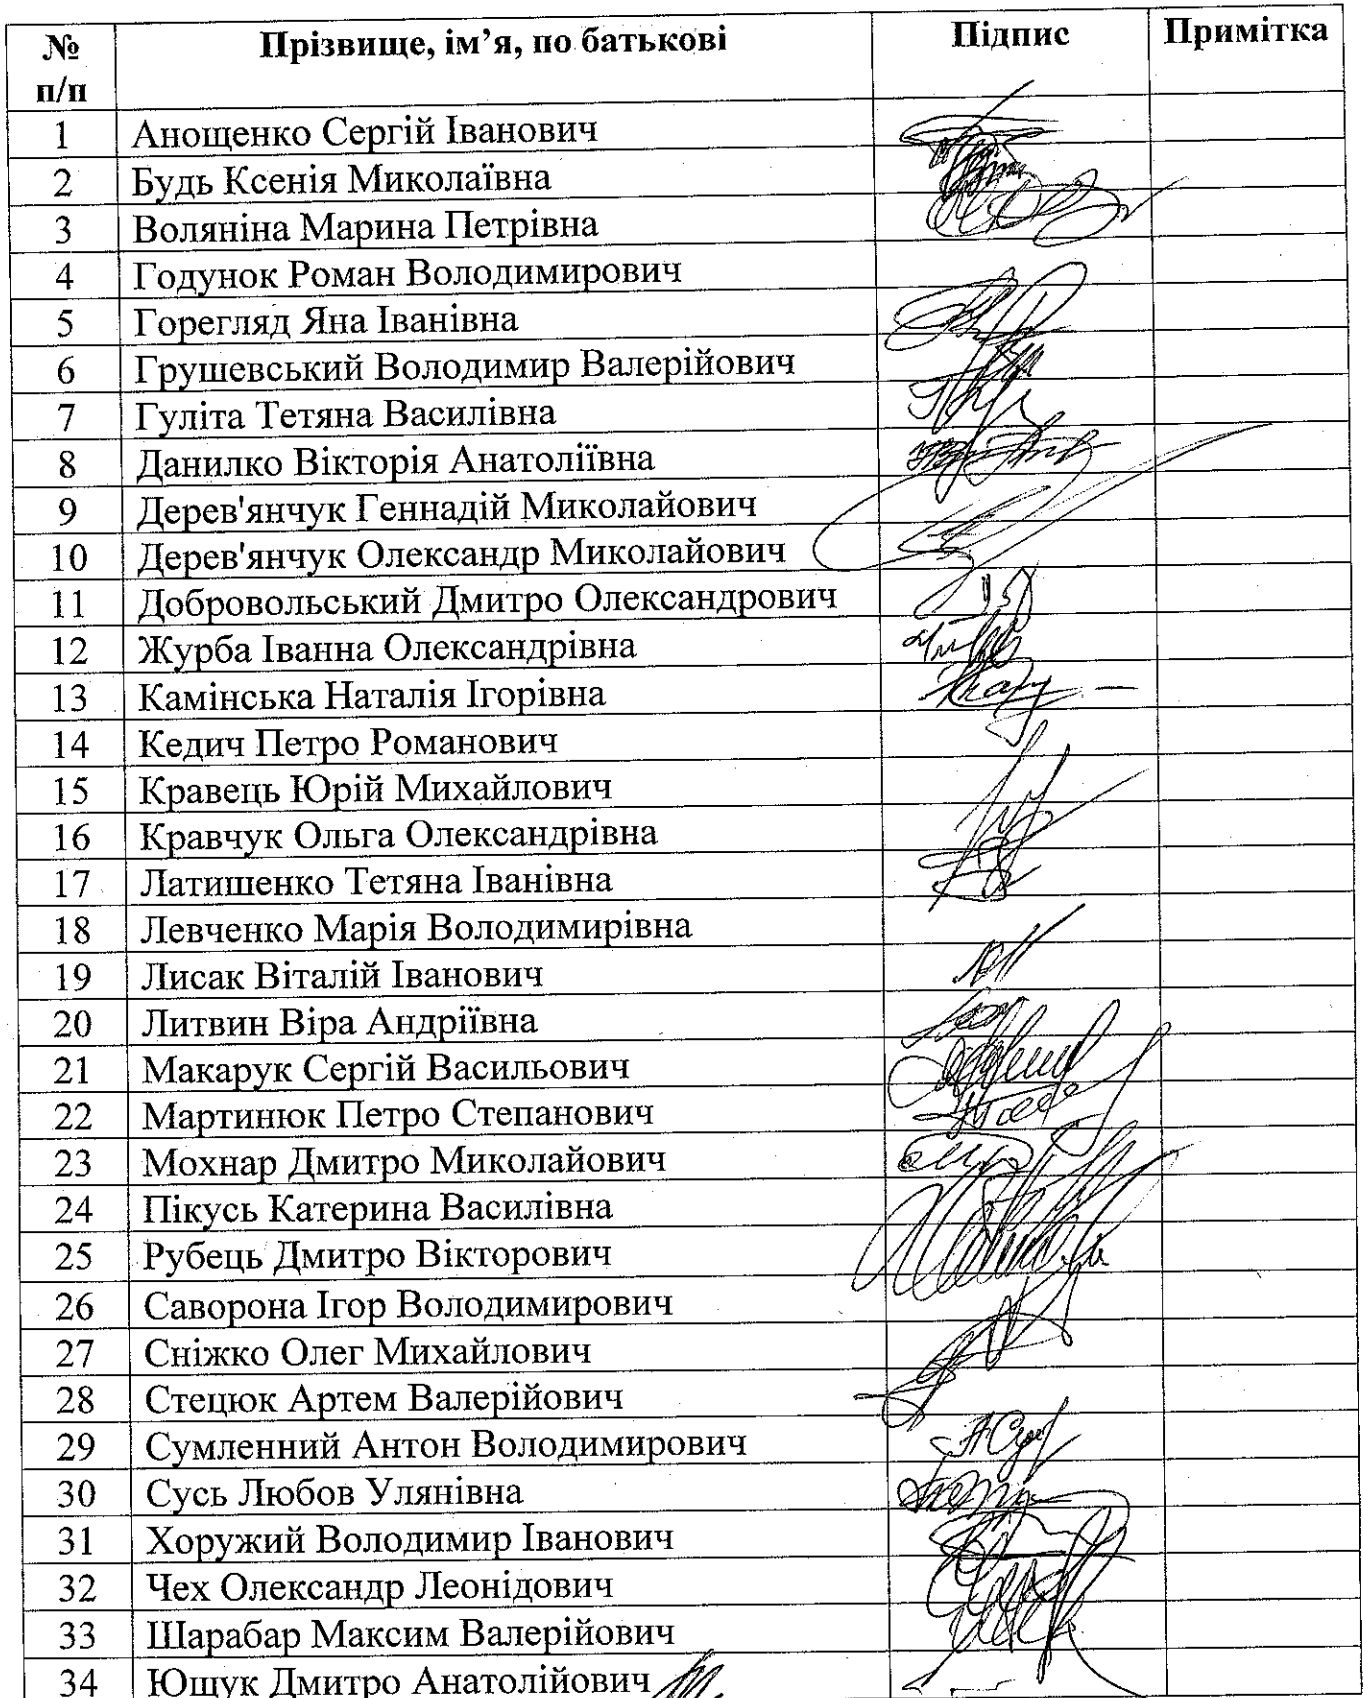 № п/п Прізвище, ім’я, по батькові Підпис Примітка
1 Анощенко Сергій Іванович
2 Будь Ксенія Миколаївна
3 Воляніна Марина Петрівна
4 Годунок Роман Володимирович
5 Горегляд Яна Іванівна
6 Грушевський Володимир Валерійович
7 Гуліта Тетяна Василівна
8 Данилко Вікторія Анатоліївна
9 Дерев'янчук Геннадій Миколайович
10 Дерев'янчук Олександр Миколайович
11 Добровольський Дмитро Олександрович
12 Журба Іванна Олександрівна
13 Камінська Наталія Ігорівна
14 Кедич Петро Романович
15 Кравець Юрій Михайлович
16 Кравчук Ольга Олександрівна
17 Латишенко Тетяна Іванівна
18 Левченко Марія Володимирівна
19 Лисак Віталій Іванович
20 Литвин Віра Андріївна
21 Макарук Сергій Васильович
22 Мартинюк Петро Степанович
23 Мохнар Дмитро Миколайович
24 Пікусь Катерина Василівна
25 Рубець Дмитро Вікторович
26 Саворона Ігор Володимирович
27 Сніжко Олег Михайлович
28 Стецюк Артем Валерійович
29 Сумленний Антон Володимирович
30 Сусь Любов Улянівна
31 Хоружий Володимир Іванович
32 Чех Олександр Леонідович
33 Шарабар Максим Валерійович
34 Ющук Дмитро Анатолійович